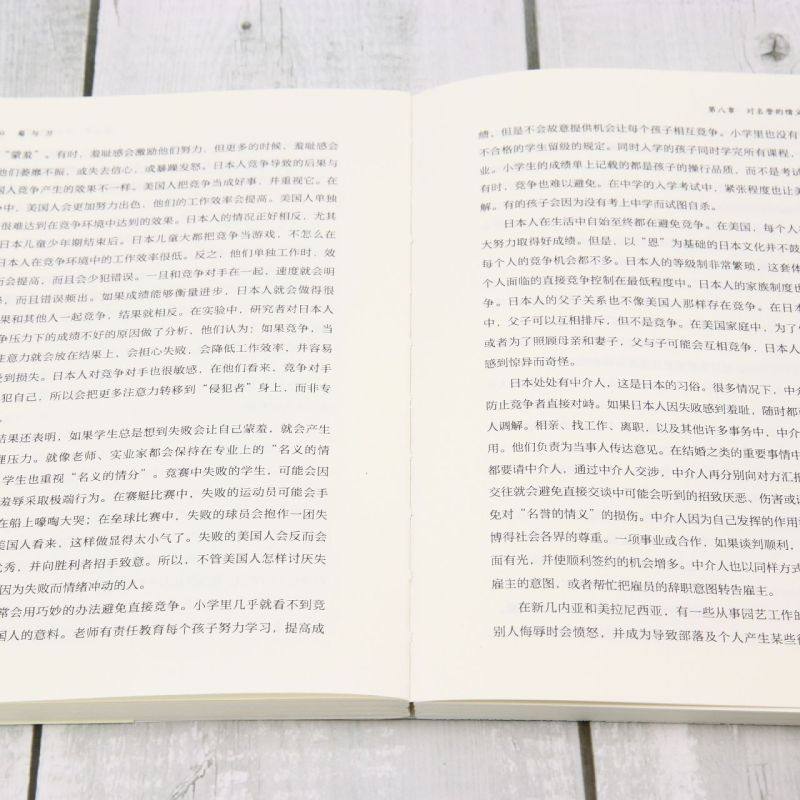 菊与刀
“蒙羞”。有时，羞耻感会激励他们努力，但更多的时候，羞耻感会
他们萎靡不振，或失去信心，或暴躁发怒。日本人竞争导致的后果与
国人竞争产生的效果不一样。美国人把竞争当成好事，并重视它。在
争中，美国人会更加努力出色，他们的工作效率会提高。美国人单独
很难达到在竞争环境中达到的效果。日本人的情况正好相反，尤其
日本儿童少年期结束后。日本儿童大都把竞争当游戏，不怎么在
日本人在竞争环境中的工作效率很低。反之，他们单独工作时，效
而会提高，而且会少犯错误。一旦和竞争对手在一起，速度就会明
，而且错误频出。如果成绩能够衡量进步，日本人就会做得很
果和其他人一起竞争，结果就相反。在实验中，研究者对日本人
争压力下的成绩不好的原因做了分析，他们认为：如果竞争，当
注意力就会放在结果上，会担心失败，会降低工作效率，并容易
受到损失。日本人对竞争对手也很敏感，在他们看来，竞争对手
犯自己，所以会把更多注意力转移到“侵犯者”身上，而非专
。
结果还表明，如果学生总是想到失败会让自己蒙羞，就会产生
理压力。就像老师、实业家都会保持在专业上的“名义的情
学生也重视“名义的情分”。竞赛中失败的学生，可能会因
羞辱采取极端行为。在赛艇比赛中，失败的运动员可能会手
在船上嚎啕大哭；在垒球比赛中，失败的球员会抱作一团失
美国人看来，这样做显得太小气了。失败的美国人会反而会
优秀，并向胜利者招手致意。所以，不管美国人怎样讨厌失
因为失败而情绪冲动的人。
常会用巧妙的办法避免直接竞争。小学里几乎就看不到竞
国人的意料。老师有责任教育每个孩子努力学习，提高成
第八章 对名誉的情义
绩，但是不会故意提供机会让每个孩子相互竞争。小学里也没有
不合格的学生留级的规定。同时入学的孩子同时学完所有课程，
业。小学生的成绩单上记载的都是孩子的操行品质，而不是考试
有时，竞争也难以避免。在中学的入学考试中，紧张程度也让美
解。有的孩子会因为没有考上中学而试图自杀。
日本人在生活中自始至终都在避免竞争。在美国，每个人
大努力取得好成绩。但是，以“恩”为基础的日本文化并不鼓
每个人的竞争机会都不多。日本人的等级制非常繁琐，这套体
个人面临的直接竞争控制在最低程度中。日本人的家族制度也
争。日本人的父子关系也不像美国人那样存在竞争。在日本
中，父子可以互相排斥，但不是竞争。在美国家庭中，为了
或者为了照顾母亲和妻子，父与子可能会互相竞争，日本人
感到惊异而奇怪。
日本处处有中介人，这是日本的习俗。很多情况下，中介
防止竞争者直接对峙。如果日本人因失败感到羞耻，随时都
人调解。相亲、找工作、离职，以及其他许多事务中，中介
用。他们负责为当事人传达意见。在结婚之类的重要事情中
都要请中介人，通过中介人交涉，中介人再分别向对方汇报
交往就会避免直接交谈中可能会听到的招致厌恶、伤害或
免对“名誉的情义”的损伤。中介人因为自己发挥的作用
博得社会各界的尊重。一项事业或合作，如果谈判顺利，
面有光，并使顺利签约的机会增多。中介人也以同样方式
雇主的意图，或者帮忙把雇员的辞职意图转告雇主。
在新几内亚和美拉尼西亚，有一些从事园艺工作的
别人侮辱时会愤怒，并成为导致部落及个人产生某些